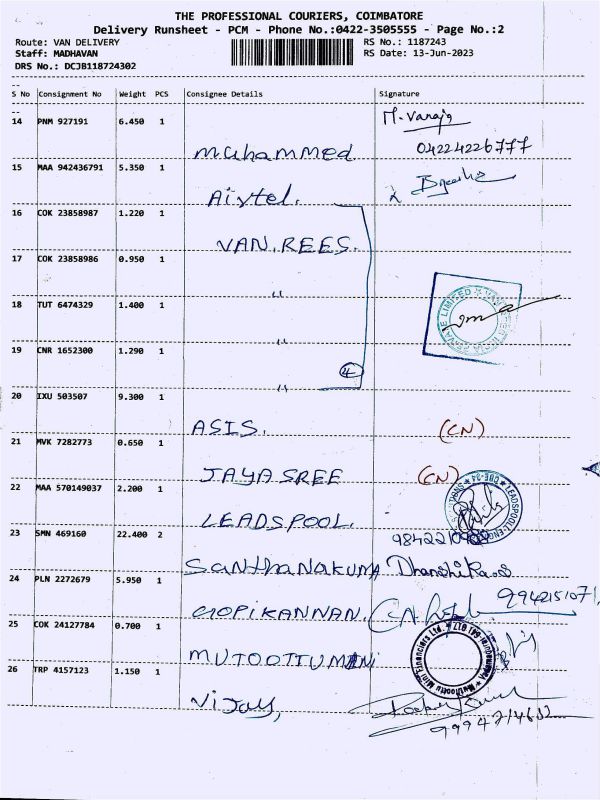 THE PROFESSIONAL COURIERS, COIMBATORE
Delivery Runsheet - PCM - Phone No.:0422-3505555 - Page No.:2
Route: VAN DELIVERY
RS No.: 1187243
Staff: MADHAVAN
RS Date: 13-Jun-2023
DRS No.: DCJB118724302
S No Consignment No Weight PCS Consignee Details Signature
14 PNM 927191 6.450 1
M. Vanaja
Muhammed 04224226777
15 MAA 942436791 5.350 1
Airtel.
16 COK 23858987 1.220 1
VAN. REES.
17 COK 23858986 0.950 1
"
18 TUT 6474329 1.400 1
"
19 CNR 1652300 1.290 1
4
"
20 IXU 503507 9.300 1
ASIS. (CN)
21 MVK 7282773 0.650 1
JAYASREE (CN)
22 MAA 570149037 2.200 1
LEADSPOOL.
23 SMN 469160 22.400 2
SANTHANAKUMA
24 PLN 2272679 5.950 1
GOPIKANNAN.
25 COK 24127784 0.700 1
Muthoottu Mini Financiers Ltd.
26 TRP 4157123 1.150 1
Vijay,